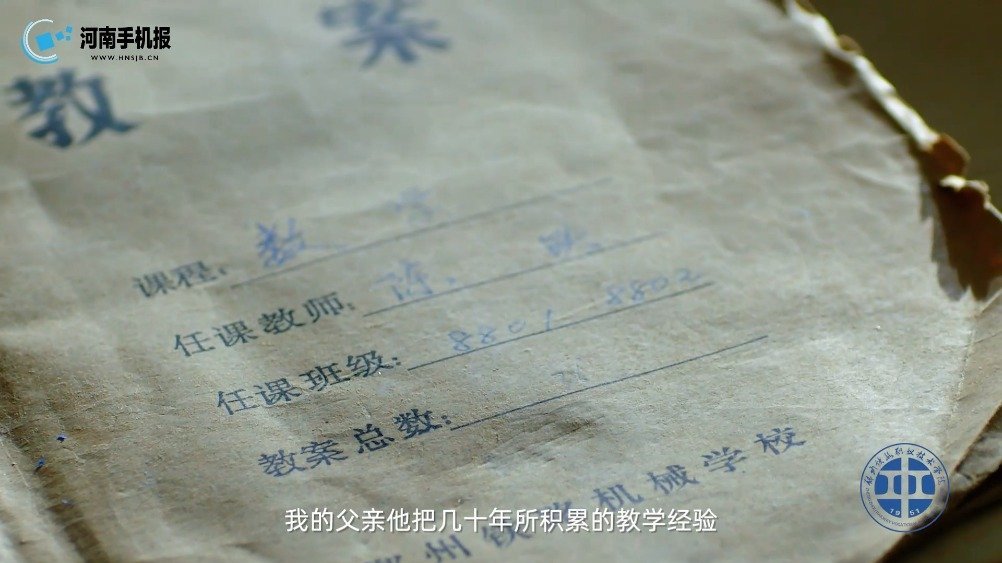 河南手机报
WWW.HNSJB.CN
教案
课程：数学
任课教师：陈
任课班级：8801 8802
教案总数：
州铁路机械学校
我的父亲他把几十年所积累的教学经验
1951